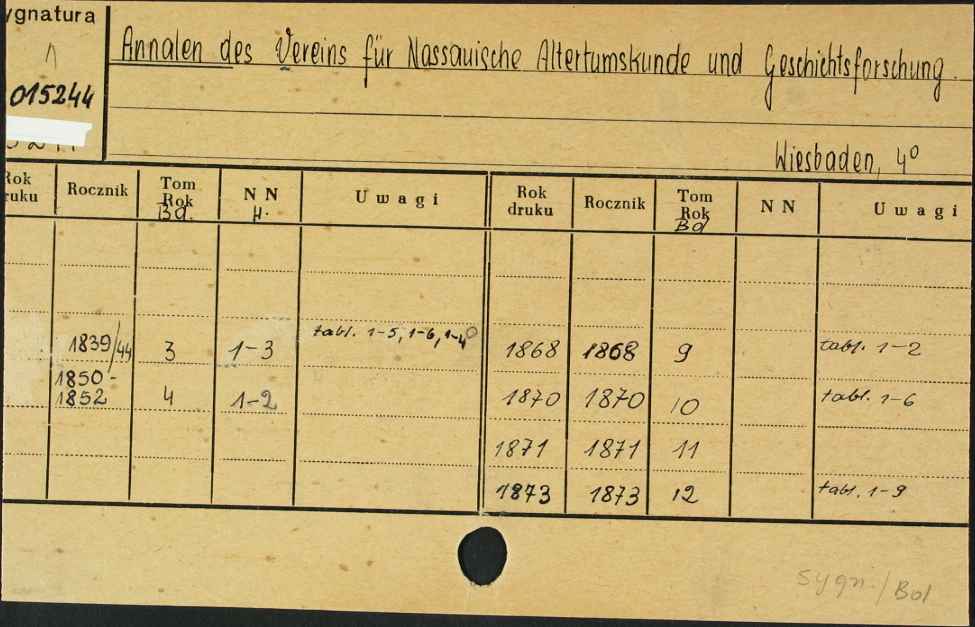 ygnatura
1
015244
Annalen des Vereins für Nassauische Altertumskunde und Geschichtsforschung.
Wiesbaden, 4°
Rok ruku Rocznik Tom Rok Bd. N N H. Uwagi Rok druku Rocznik Tom Rok Bd N N Uwagi
1839/44 3 1-3 tabl. 1-5, 1-6, 1-4 1868 1868 9 tabl. 1-2
1850-1852 4 1-2 1870 1870 10 tabl. 1-6
1871 1871 11
1873 1873 12 tabl. 1-9
sygn./Bd